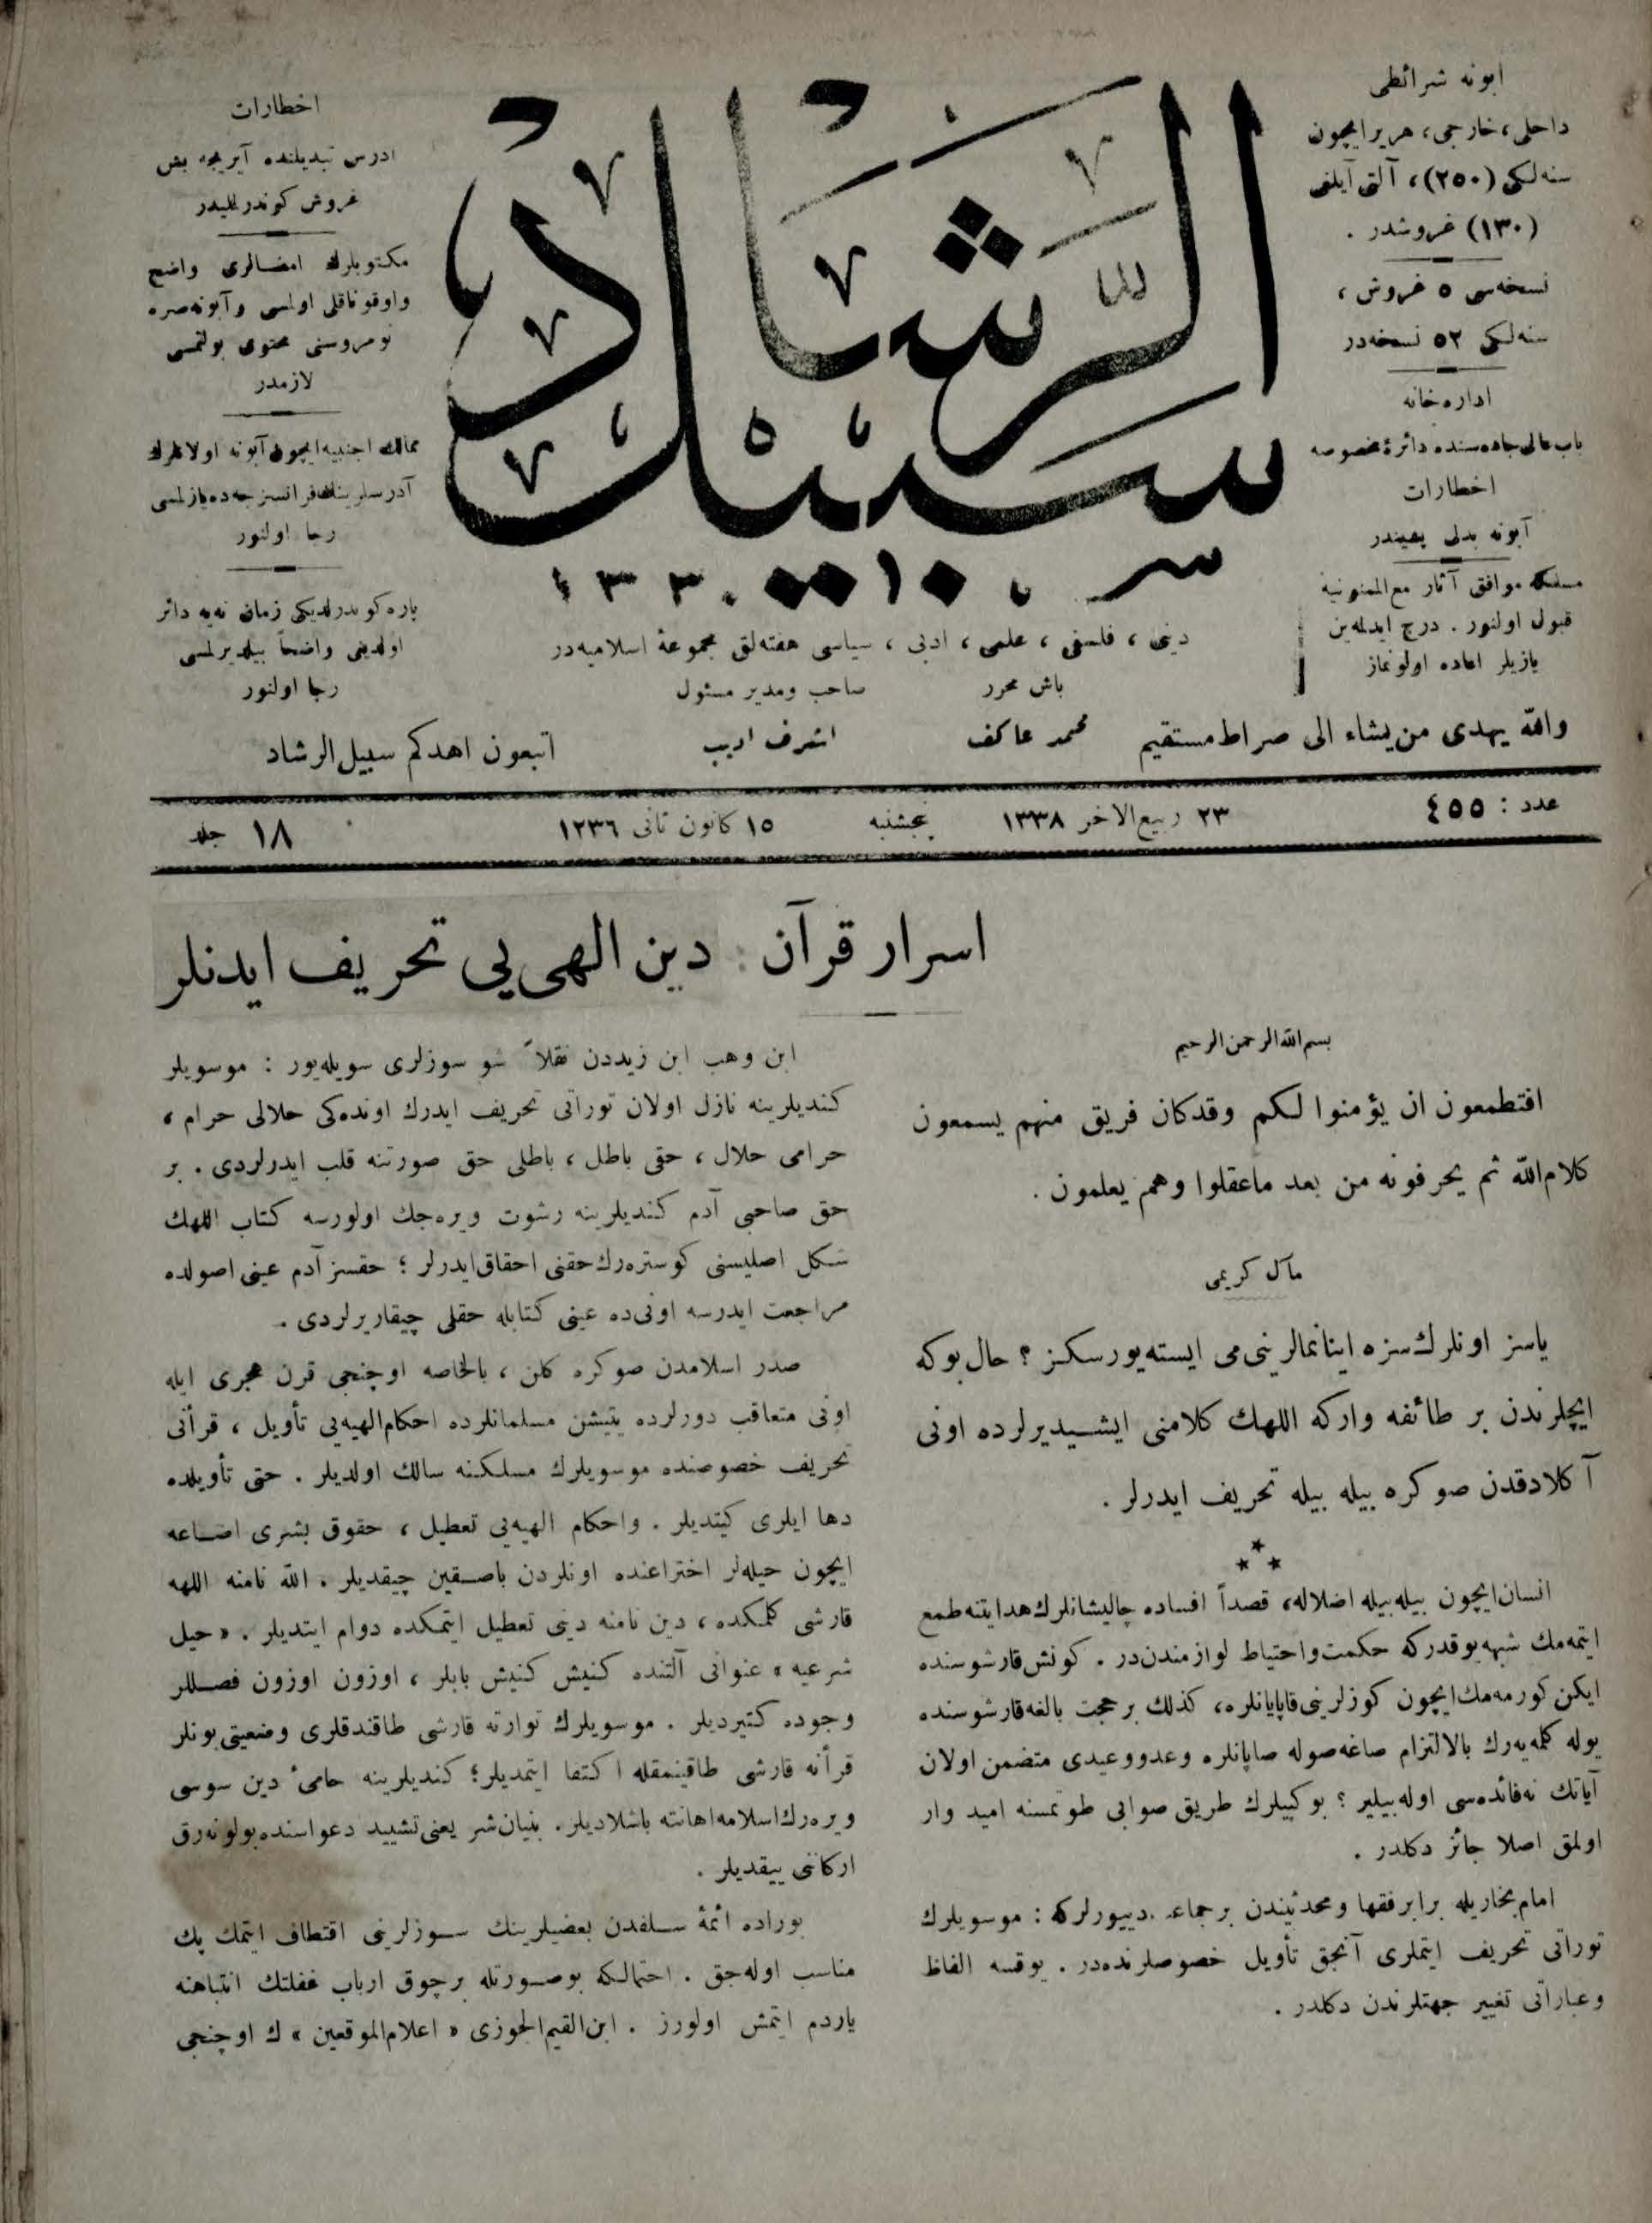 ابونه شرائطی
داخلی، خارجی، هر یر ایچون
سنه‌لکی (٢٥٠)، آلتی آیلغی
(١٣٠) غروشدر .
نسخه‌سی ٥ غروش،
سنه‌لکی ٥٢ نسخه‌در
اداره‌خانه
باب عالی جاده‌سنده دائرۀ مخصوصه
اخطارات
آبونه بدلی پشیندر
مسلکه موافق آثار مع‌الممنونیه
قبول اولنور . درج ایدلمه‌ین
یازیلر اعاده اولونماز
سبیل الرشاد
دینی ، فلسفی ، علمی ، ادبی ، سیاسی هفته‌لق مجموعۀ اسلامیه‌در
باش محرر
محمد عاکف
صاحب ومدیر مسئول
اشرف ادیب
اخطارات
ادرس تبدیلنده آیریجه بش
غروش کوندرلملیدر
مکتوبلرك امضالری واضح
واوقوناقلی اولمسی وآبونه صره
نومروسنی محتوی بولنمسی
لازمدر
ممالك اجنبیه ایچون آبونه اولانلرك
آدرسلرینك فرانسزجه‌ده یازلمسی
رجا اولنور
پاره کوندرلدیکی زمان نه‌یه دائر
اولدیغی واضحاً بیلدیرلمسی
رجا اولنور
والله یهدی من یشاء الی صراط مستقیم
اتبعون اهدکم سبیل الرشاد
عدد : ٤٥٥
٢٣ ربیع الاخر ١٣٣٨
پنجشنبه
١٥ کانون ثانی ١٣٣٦
جلد ١٨
اسرار قرآن : دین الهی یی تحریف ایدنلر
بسم الله الرحمن الرحیم
افتطمعون ان یؤمنوا لکم وقدکان فریق منهم یسمعون
کلام الله ثم یحرفونه من بعد ماعقلوا وهم یعلمون .
مآل کریمی
یاسز اونلرك سزه اینانمالرینی می ایسته‌یورسکز ؟ حال بوکه
ایچلرندن بر طائفه وارکه اللهك کلامنی ایشیدیرلرده اونی
آکلادقدن صوکره بیله بیله تحریف ایدرلر .
انسان ایچون بیله بیله اضلاله، قصداً افساده چالیشانلرك هدایتنه طمع
ایتمه‌مك شبهه یوقدرکه حکمت واحتیاط لوازمندن‌در . کونش قارشوسنده
ایکن کورمه‌مك ایچون کوزلرینی قاپایانلره، کذلك بر حجت بالغه قارشوسنده
یوله کلمه‌یه‌رك بالالتزام صاغه صوله صاپانلره وعد و وعیدی متضمن اولان
آیاتك نه فائده‌سی اوله‌بیلیر ؟ بوکبیلرك طریق صوابی طوتمسنه امید وار
اولمق اصلا جائز دکلدر .
امام بخاریله برابر فقها ومحدثیندن بر جماعه دیيورلرکه : موسویلرك
توراتی تحریف ایتملری آنجق تأویل خصوصلرنده‌در . یوقسه الفاظ
وعباراتی تغییر جهتلرندن دکلدر .
ابن وهب ابن زیددن نقلاً شو سوزلری سویله‌یور : موسویلر
کندیلرینه نازل اولان توراتی تحریف ایدرك اونده‌کی حلالی حرام ،
حرامی حلال ، حقی باطل ، باطلی حق صورتنه قلب ایدرلردی . بر
حق صاحبی آدم کندیلرینه رشوت ویره‌جك اولورسه کتاب اللهك
شکل اصلیسنی کوستره‌رك حقنی احقاق ایدرلر ؛ حقسز آدم عینی اصولده
مراجعت ایدرسه اونی‌ده عینی کتابله حقلی چیقاریرلردی .
صدر اسلامدن صوکره کلن ، بالخاصه اوچنجی قرن هجری ایله
اونی متعاقب دورلرده یتیشن مسلمانلرده احکام الهیه‌یی تأویل ، قرآنی
تحریف خصوصنده موسویلرك مسلکنه سالك اولدیلر . حتی تأویلده
دها ایلری کیتدیلر . واحکام الهیه‌یی تعطیل ، حقوق بشری اضاعه
ایچون حیله‌لر اختراعنده اونلردن باصقین چیقدیلر . الله نامنه اللهه
قارشی کلمکده ، دین نامنه دینی تعطیل ایتمکده دوام ایتدیلر . « حیل
شرعیه » عنوانی آلتنده کنیش کنیش بابلر ، اوزون اوزون فصللر
وجوده کتیردیلر . موسویلرك توراته قارشی طاقندقلری وضعیتی بونلر
قرآنه قارشی طاقینمقله اکتفا ایتمدیلر؛ کندیلرینه حامیٔ دین سوسی
ویره‌رك اسلامه اهانته باشلادیلر. بنیان شر یعنی تشیید دعواسنده بولونه‌رق
ارکاننی ییقدیلر .
بوراده ائمۀ سلفدن بعضیلرینك سوزلرینی اقتطاف ایتمك پك
مناسب اوله‌جق . احتمالکه بوصورتله بر چوق ارباب غفلتك انتباهنه
یاردم ایتمش اولورز . ابن القیم الجوزی « اعلام الموقعین » ك اوچنجی